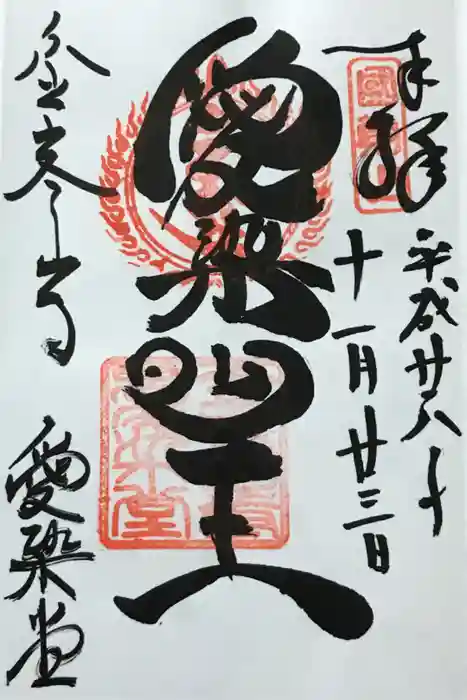 奉拝
平成廿八年
十一月廿三日
愛染明王
金泰寺
愛染堂